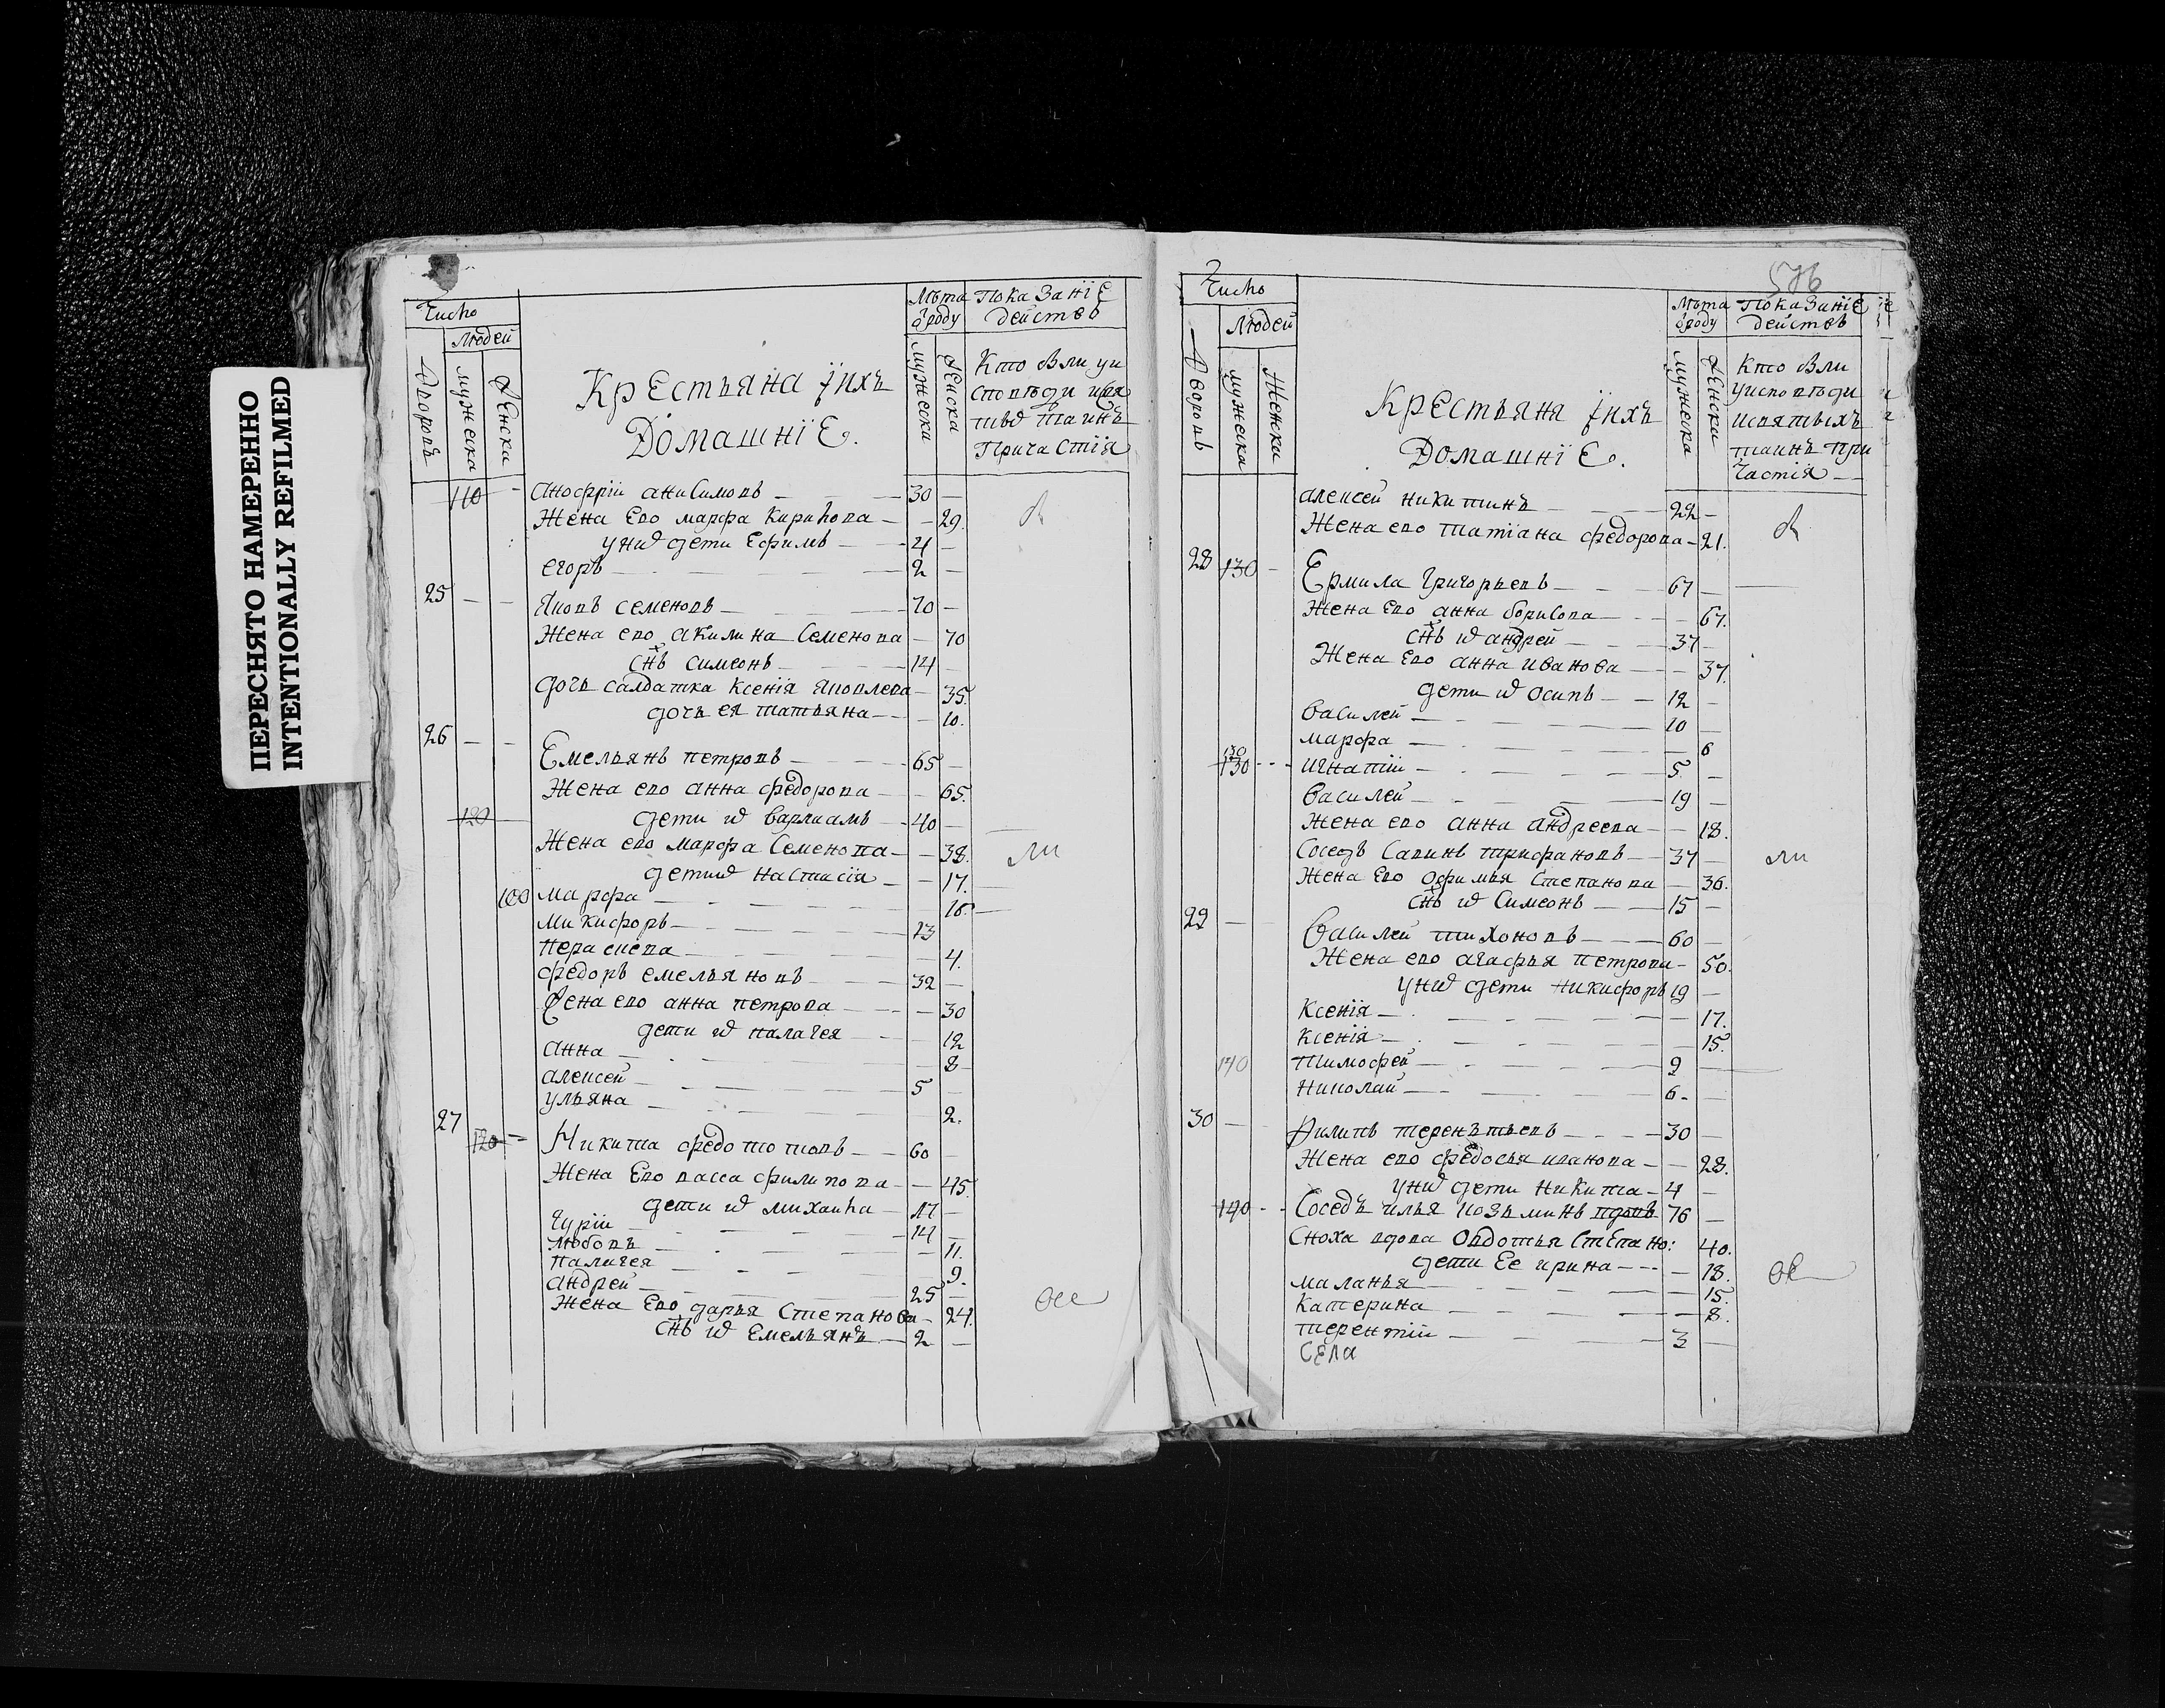 ПЕРЕСНЯТО НАМЕРЕННО
INTENTIONALLY REFILMED
Число
Людей
Дворовъ
мужеска
Женска
Крестьяна їихъ
Домашнїе.
Лѣта
ѿроду
мужеска
Женска
Показанїе
действъ
Кто были уи
споведи исвя
тыѡ таинъ
Причастїя
110 Анофрїи анисимовъ 30
Жена Ево марфа Кирилова 29.
унихъ дети Ефимъ 4
егоръ 2
25 Яковъ семеновъ 70
Жена ево акилина Семенова 70
снъ симеонъ 14
дочь салдатка Ксенїя Яковлева 35.
дочь ея татьяна 10.
26 Емельянъ петровъ 65
Жена ево анна федорова 65.
120 дети ихъ варлаамъ 40
Жена ево марфа Семенова 38.
дети ихъ настасїя 17.
100 марфа 16.
микифоръ 13
Параскева 4.
федоръ емельяновъ 32
Жена ево анна петрова 30
дети ихъ палагея 12
анна 8
алексей 5
ульяна 2.
27 120 Никита федотовъ 60
Жена Ево васса филипова 45.
дети ихъ михаила 17
Гурїи 14
любовь 11.
палагея 9.
андрей 25
Жена Ево дарья Степанова 24.
снъ ихъ Емельянъ 2
576
Число
Людей
Дворовъ
мужеска
Женски
Крестьяня їихъ
Домашнїе.
Лѣта
ѿроду
мужеска
Женски
Показанїе
действъ
Кто были
уисповѣди
исвятыхъ
таинъ При
частїя
алексей никитинъ 22
Жена ево татїана федорова 21.
28 130 Ермила Григорьевъ 67
Жена Ево анна борисова 67.
снъ ихъ андрей 37
Жена Ево анна иванова 37.
дети ихъ осипъ 12
василей 10
марфа 6
130
130 игнатїи 5.
василей 19
Жена ево анна андреева 18.
Соседъ Савинъ трифановъ 37
Жена Ево офимья Степанова 36.
снъ ихъ Симеонъ 15
29 Василей тихоновъ 60
Жена ево агафья петрова 50.
унихъ дети никифоръ 19
Ксенїя 17.
Ксенїя 15.
140 Тимофей 9
Николай 6
30 Филипъ терентьевъ 30
Жена ево федосья иванова 28.
унихъ дети никита 4
140 Соседъ илья козьминъ 76
Сноха вдова Овдотья Степано: 40.
дети Ее ирина 18.
маланья 15.
Катерина 8.
терентїи 3
Села